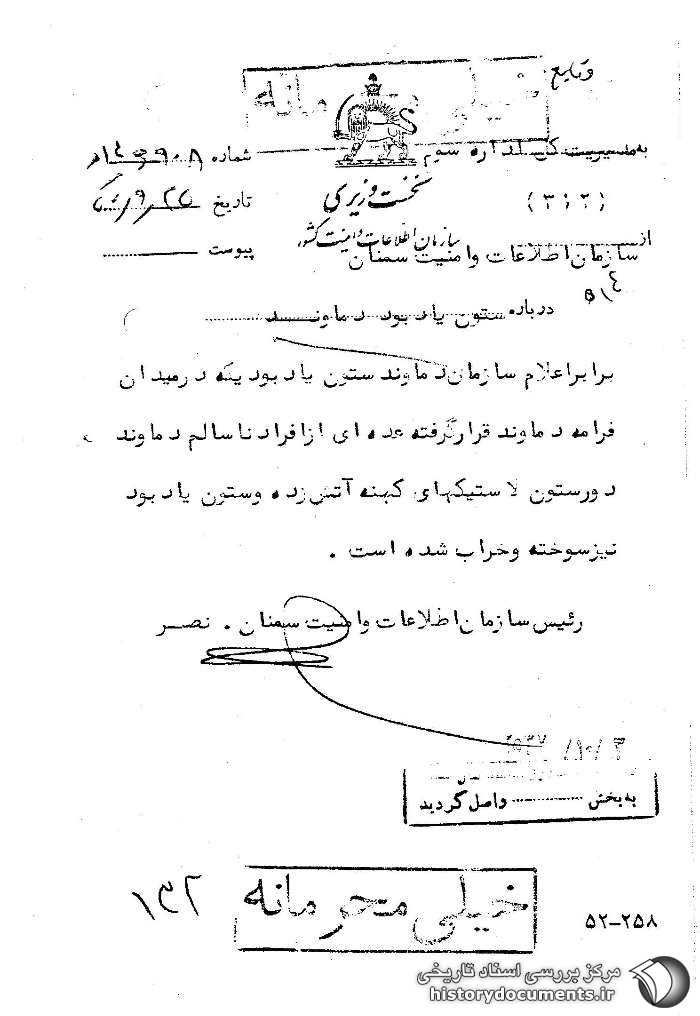 وقایع
خیلی محرمانه
به مدیریت کل اداره سوم
(۳۱۲)
نخست وزیری
سازمان اطلاعات و امنیت کشور
شماره
تاریخ
پیوست
از سازمان اطلاعات و امنیت سمنان
درباره ستون یاد بود دماوند
برابر اعلام سازمان دماوند ستون یاد بودیکه در میدان
فرامه دماوند قرار گرفته عده ای از افراد ناسالم دماوند
دورستون لاستیکهای کهنه آتش زده وستون یاد بود
نیزسوخته وخراب شده است .
رئیس سازمان اطلاعات وامنیت سمنان . نصر
۲۵۳۷ /۱۰/ ۳
به بخش واصل گردید
خیلی محرمانه
۱۳۲
۵۲-۲۵۸
مرکز بررسی اسناد تاریخی
historydocuments.ir